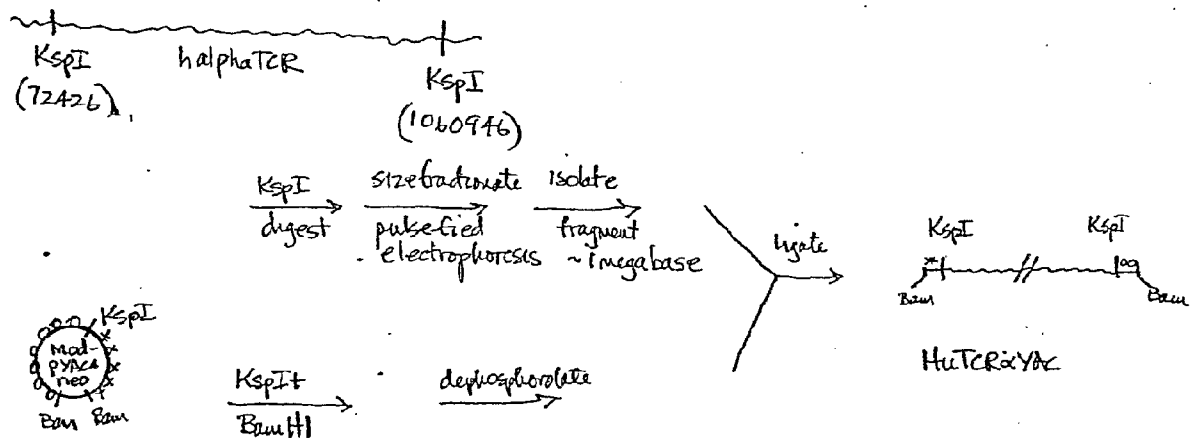 KspI
(72426)
halphaTCR
KspI
(1060946)
KspI
digest
sizefractionate
pulsefied
electrophoresis
isolate
fragment
~1megabase
ligate
KspI
KspI
Bam
Bam
HuTCRαYAC
KspI
Mod-
pYAC4
neo
Bam Bam
KspI+
BamHI
dephosphorolate